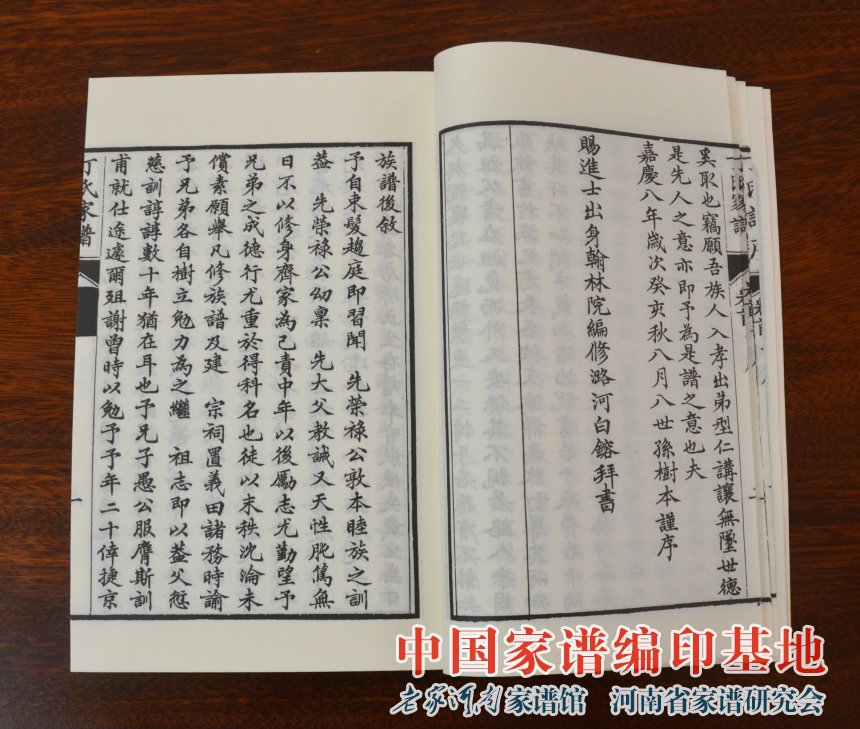 奚取也竊願吾族人入孝出弟型仁講讓無墜世德
是先人之意亦即予為是譜之意也夫
嘉慶八年歲次癸亥秋八月八世孫樹本謹序
賜進士出身翰林院編修潞河白鎔拜書
族譜後敘
予自束髮趨庭即習聞 先榮祿公敦本睦族之訓
益 先榮祿公幼稟 先大父教誡又天性肫篤無
日不以修身齊家為己責中年以後勵志尤勤望予
兄弟之成德行尤重於得科名也徒以末秩沈淪未
償素願舉凡修族譜及建 宗祠置義田諸務時諭
予兄弟各自樹立勉力為之繼 祖志即以益父愆
慈訓諄諄數十年猶在耳也予兄子愚公服膺斯訓
甫就仕途遽爾殂謝曾時以勉予予年二十倖捷京
丁氏家譜
一
中国家谱编印基地
老家河南家谱馆 河南省家谱研究会